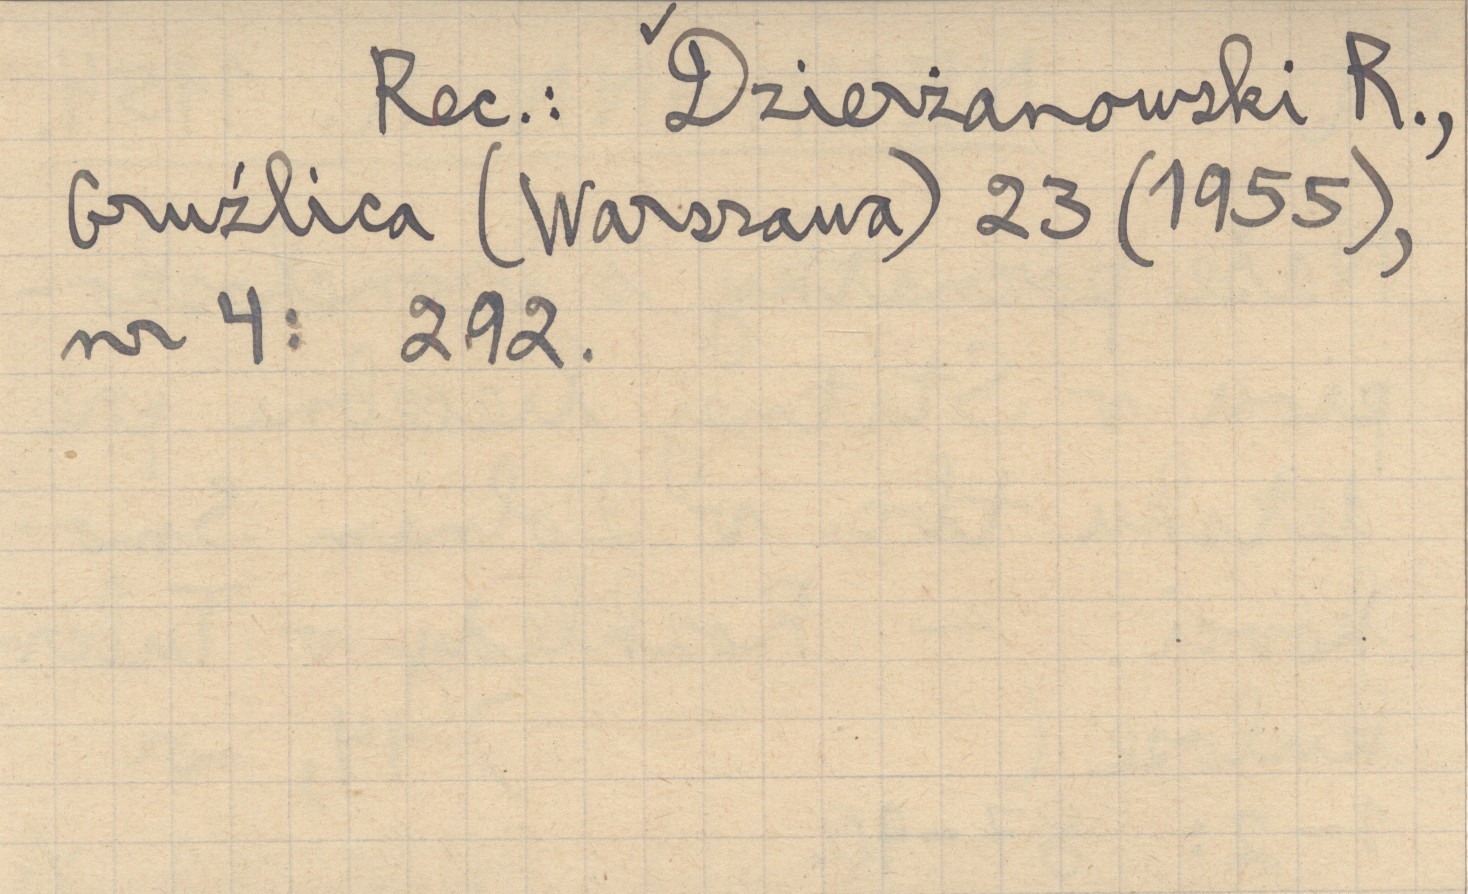 Rec.: ✓Dzierżanowski R.,
Gruźlica (Warszawa) 23 (1955),
nr 4: 292.